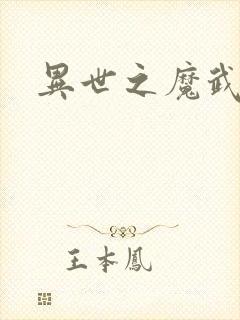 異世之魔武
王本鳳